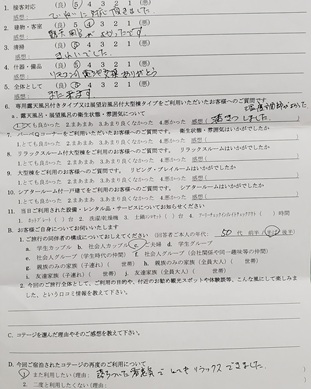 1. 接客対応 (良) 5 4 3 2 1 (悪)
感想：ていねいに対応して頂きました
2. 建物・客室 (良) 5 4 3 2 1 (悪)
感想：
3. 清掃 (良) 5 4 3 2 1 (悪)
感想：きれいでした
4. 什器・備品 (良) 5 4 3 2 1 (悪)
感想：
5. 全体として (良) 5 4 3 2 1 (悪)
感想：また来ます
6. 専用露天風呂付きタイプ又は展望岩風呂付大型棟タイプをご利用いただいたお客様へのご質問です。
a. 露天風呂・展望風呂の衛生状態・雰囲気について
1.とても良かった 2.まあまあ 3.あまり良くなかった 4.悪かった 感想（
をご利用いただいたお客様へのご質問です。 衛生状態・雰囲気はいかがでしたか
1.とても良かった 2.まあまあ 3.あまり良くなかった 4.悪かった 感想（
8. リラックスルーム付大型棟をご利用いただいたお客様へのご質問です。 リラックスルームはいかがでしたか
1.とても良かった 2.まあまあ 3.あまり良くなかった 4.悪かった 感想（
9. 大型棟をご利用いただいたお客様へのご質問です。 リビング・プレイルームはいかがでしたか
1.とても良かった 2.まあまあ 3.あまり良くなかった 4.悪かった 感想（
10. シアタールーム付一戸建てをご利用いただいたお客様へのご質問です。 シアタールームはいかがでしたか
1.とても良かった 2.まあまあ 3.あまり良くなかった 4.悪かった 感想（
11. 当日ご利用された設備・レンタル品・サービスについてお知らせください
B. お客様ご自身についてお伺いいたします
1. ご旅行の同伴者の構成についておしえてください （回答者ご本人の年代 50 代
a. 学生カップル b. 社会人カップル c. 夫婦 d. 学生グループ
e. 社会人グループ（学生時代の仲間） f. 社会人グループ（会社関係や同一職場等の仲間）
g. 親族のみの家族（子連れ）（ 世帯） h. 親族のみの家族（全員大人）（ 世帯）
i. 友達家族（子連れ）（ 世帯） j. 友達家族（全員大人）（ 世帯）
2. 今回のご旅行全体として、ご利用の目的や、付近のお勧め観光スポットや体験談等、こんな風にして楽しみました、という口コミ情報を教えて下さい。
C. コテージを選んだ理由やそのご感想を教えて下さい。
D. 今回ご宿泊されたコテージの再度のご利用について
1. また利用したい（理由）落ちついた雰囲気でとてもリラックスできました。
2. 二度と利用したくない（理由）